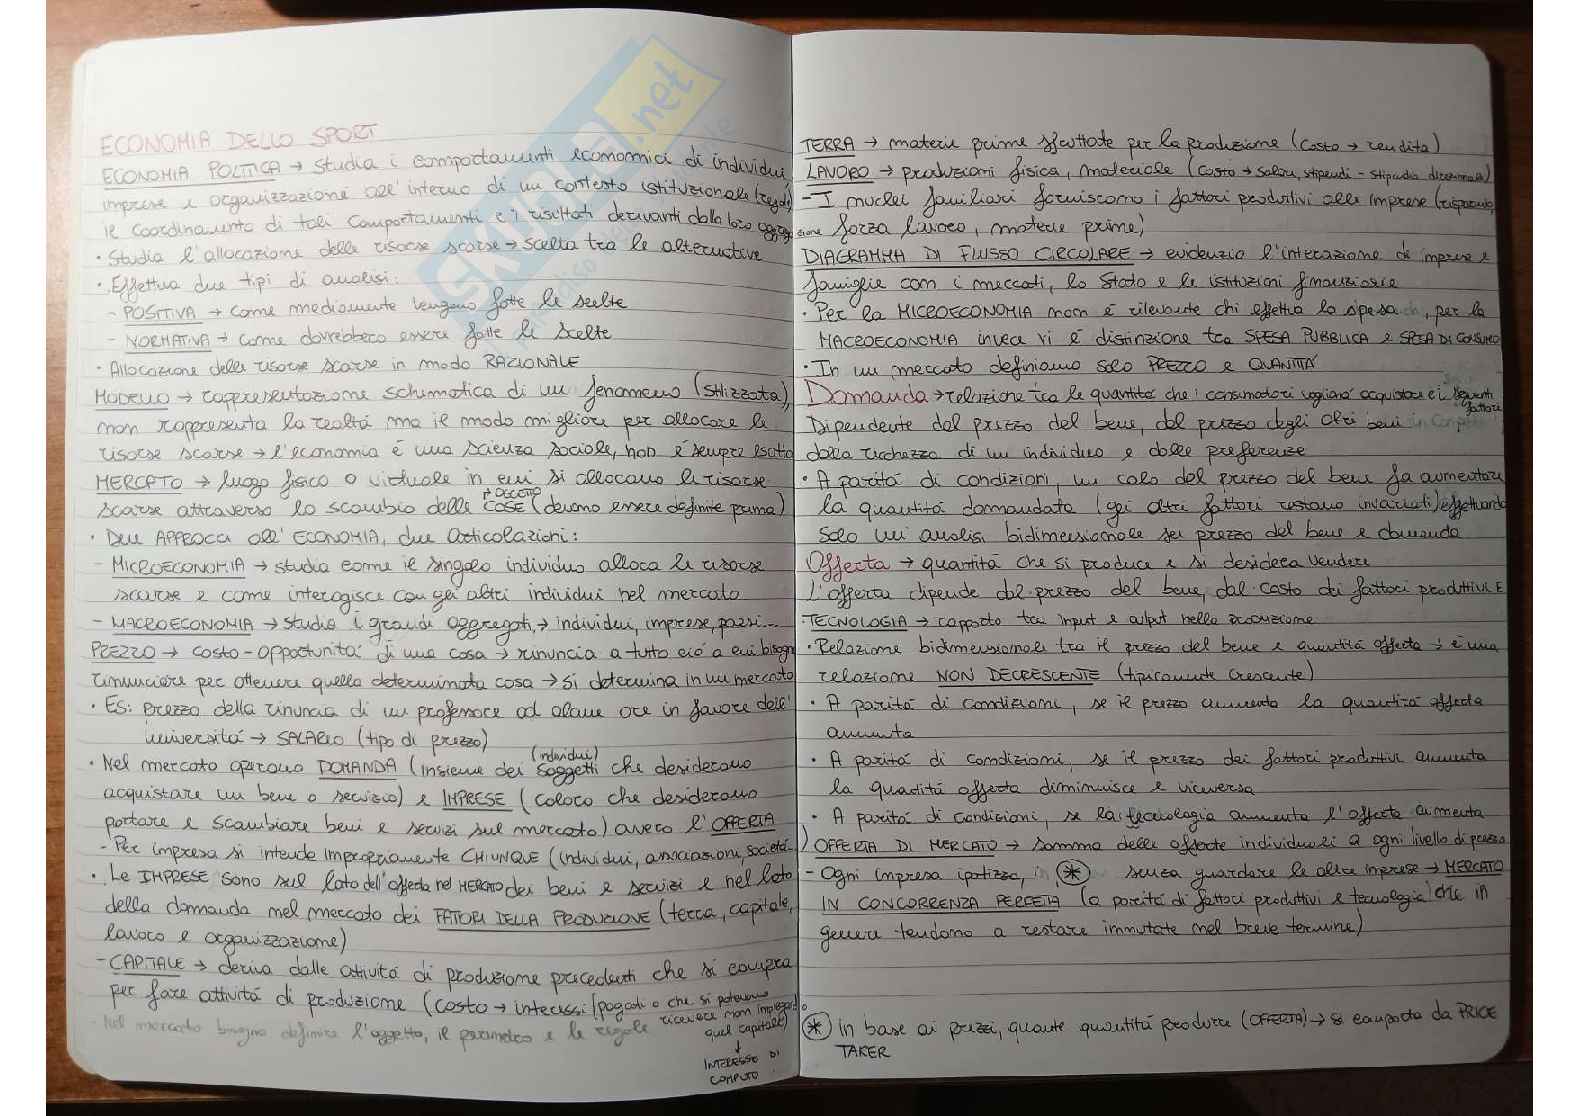 ECONOMIA DELLO SPORT
ECONOMIA POLITICA → studia i comportamenti economici di individui,
imprese e organizzazione all'interno di un contesto istituzionale (regole)
il coordinamento di tali comportamenti e i risultati derivanti dalla loro aggregazione
• Studia l'allocazione delle risorse scarse → scelta tra le alternative
• Effettua due tipi di analisi:
- POSITIVA → come mediamente vengono fatte le scelte
- NORMATIVA → come dovrebbero essere fatte le scelte
• Allocazione delle risorse scarse in modo RAZIONALE
MODELLO → rappresentazione schematica di un fenomeno (stilizzata),
non rappresenta la realtà ma il modo migliore per allocare le
risorse scarse → l'economia è una scienza sociale, non è sempre esatta
MERCATO → luogo fisico o virtuale in cui si allocano le risorse
scarse attraverso lo scambio delle COSE (devono essere definite prima)
→ OGGETTO
• Due APPROCCI all'ECONOMIA, due articolazioni:
- MICROECONOMIA → studia come il singolo individuo alloca le risorse
scarse e come interagisce con gli altri individui nel mercato
- MACROECONOMIA → studia i grandi aggregati → individui, imprese, paesi...
PREZZO → costo-opportunità di una cosa → rinuncia a tutto ciò a cui bisogna
rinunciare per ottenere quella determinata cosa → si determina in un mercato
• ES: prezzo della rinuncia di un professore ad alcune ore in favore dell'
università → SALARIO (tipo di prezzo)
• Nel mercato operano DOMANDA (insieme dei soggetti che desiderano
(individui)
acquistare un bene o servizio) e IMPRESE (coloro che desiderano
portare e scambiare beni e servizi sul mercato) ovvero l'OFFERTA
- Per impresa si intende impropriamente CHIUNQUE (individui, associazioni, società...)
• Le IMPRESE sono sul lato dell'offerta nel MERCATO dei beni e servizi e nel lato
della domanda nel mercato dei FATTORI DELLA PRODUZIONE (terra, capitale,
lavoro e organizzazione)
- CAPITALE → deriva dalle attività di produzione precedenti che si compra
per fare attività di produzione (costo → interessi (pagati o che si potevano
ricevere non impiegando
quel capitale)
↓
INTERESSO DI
COMPUTO
- Nel mercato bisogna definire l'oggetto, il parametro e le regole
TERRA → materie prime sfruttate per la produzione (costo → rendita)
LAVORO → produzioni fisica, materiale (costo → salari, stipendi - stipendio direzionale)
- I nuclei familiari forniscono i fattori produttivi alle imprese (risparmio,
forza lavoro, materie prime)
DIAGRAMMA DI FLUSSO CIRCOLARE → evidenzia l'interazione di imprese e
famiglie con i mercati, lo Stato e le istituzioni finanziarie
• Per la MICROECONOMIA non è rilevante chi effettua la spesa, per la
MACROECONOMIA invece vi è distinzione tra SPESA PUBBLICA e SPESA DI CONSUMO
• In un mercato definiamo solo PREZZO e QUANTITÀ
Domanda → relazione tra le quantità che i consumatori vogliono acquistare e i seguenti
fattori
Dipendente dal prezzo del bene, dal prezzo degli altri beni
dalla ricchezza di un individuo e dalle preferenze
• A parità di condizioni, un calo del prezzo del bene fa aumentare
la quantità domandata (gli altri fattori restano invariati) effettuando
solo un'analisi bidimensionale sul prezzo del bene e domanda
Offerta → quantità che si produce e si desidera vendere
L'offerta dipende dal prezzo del bene, dal costo dei fattori produttivi E
TECNOLOGIA → rapporto tra input e output nella produzione
• Relazione bidimensionale tra il prezzo del bene e quantità offerta: è una
relazione NON DECRESCENTE (tipicamente crescente)
• A parità di condizioni, se il prezzo aumenta la quantità offerta
aumenta
• A parità di condizioni, se il prezzo dei fattori produttivi aumenta
la quantità offerta diminuisce e viceversa
• A parità di condizioni, se la tecnologia aumenta l'offerta aumenta
OFFERTA DI MERCATO → somma delle offerte individuali a ogni livello di prezzo
- Ogni impresa ipotizza, * senza guardare le altre imprese → MERCATO
IN CONCORRENZA PERFETTA (a parità di fattori produttivi e tecnologia che in
genere tendono a restare immutate nel breve termine)
* in base ai prezzi, quante quantità produrre (OFFERTA) → si comporta da PRICE
TAKER